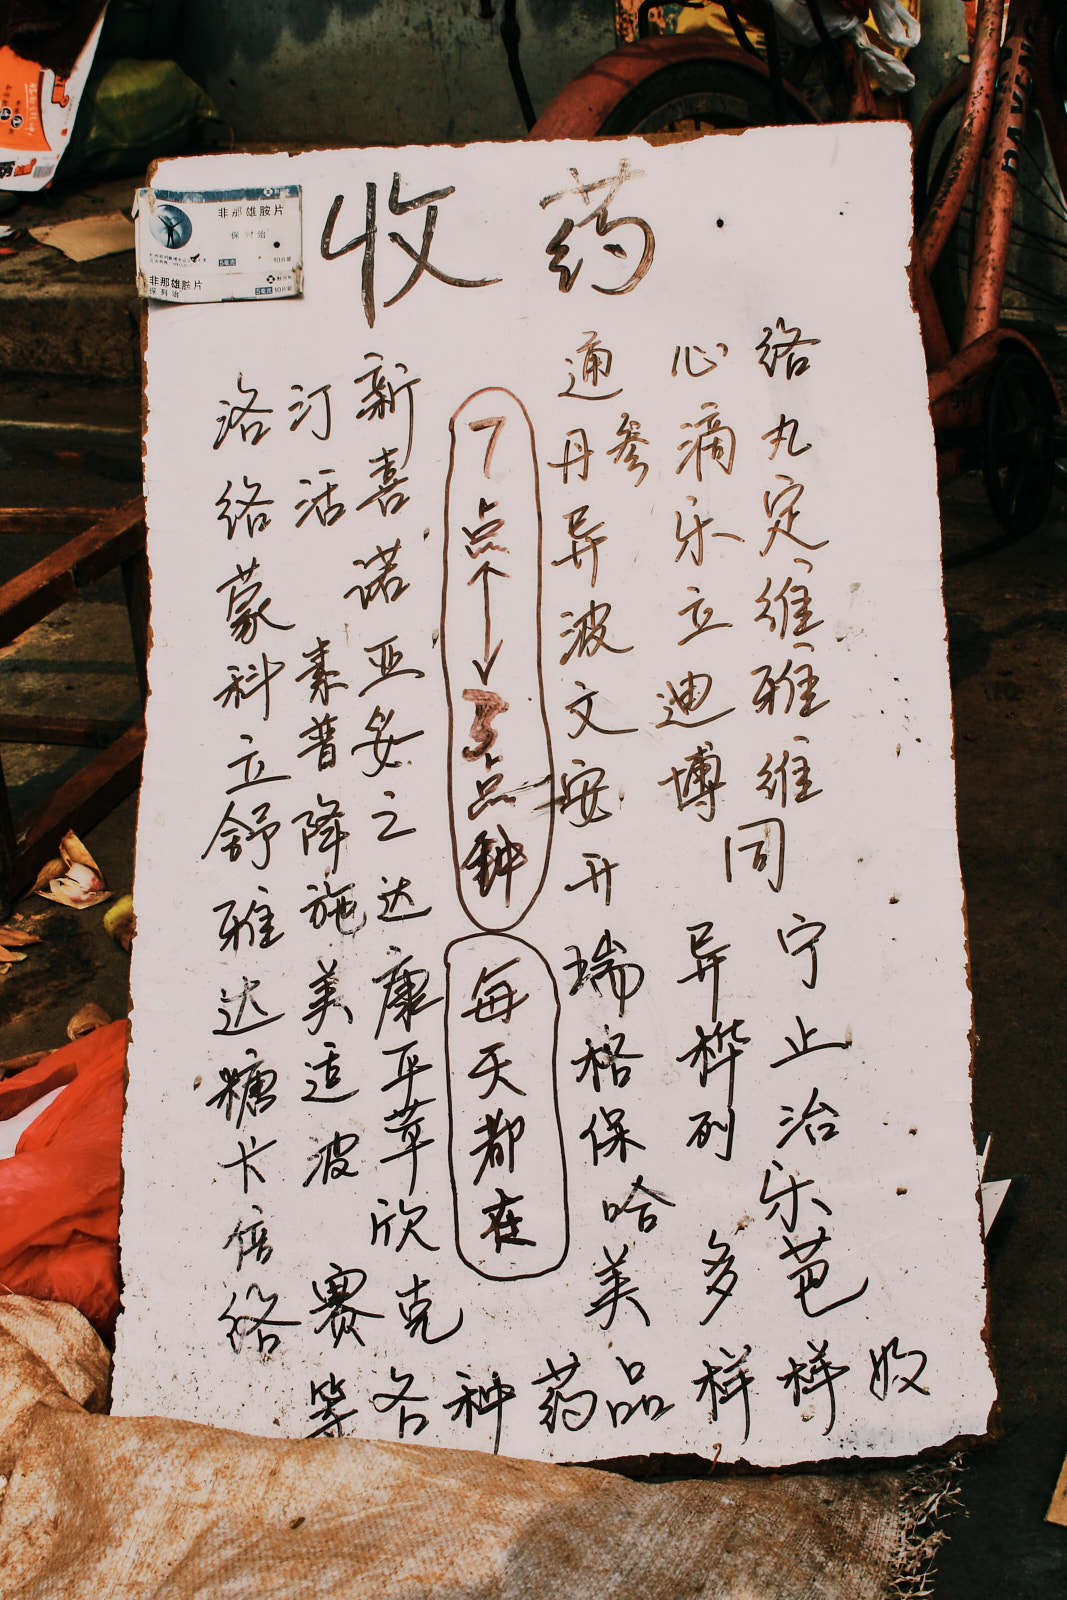 收药
非那雄胺片
保列治
5毫克 10片装
非那雄胺片
保列治
5毫克 10片装
洛汀新
络活喜
蒙诺
科素亚
立普妥
舒降之
雅施达
达美康
糖适平
卡波苹
倍欣
络赛克
7点↔3点钟
每天都在
通心络
丹参滴丸
异乐定
波立维
文迪雅
安博维
开同
瑞异宁
格桦止
保列治
哈乐
美多芭
等各种药品样样收